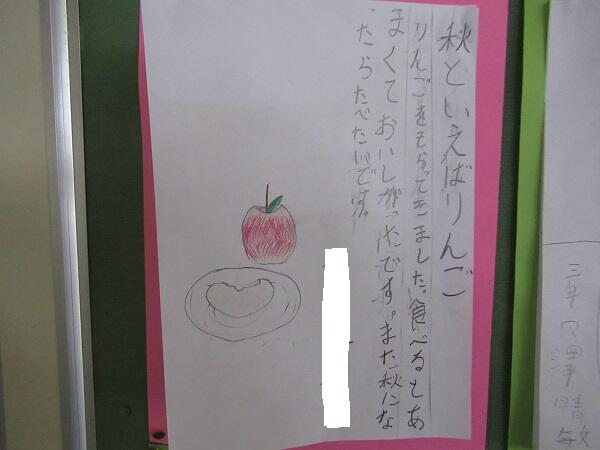 三年
秋といえばりんご
りんごをもらってきました。食べるとあ
まくておいしかったです。また秋にな
ったらたべたいです。